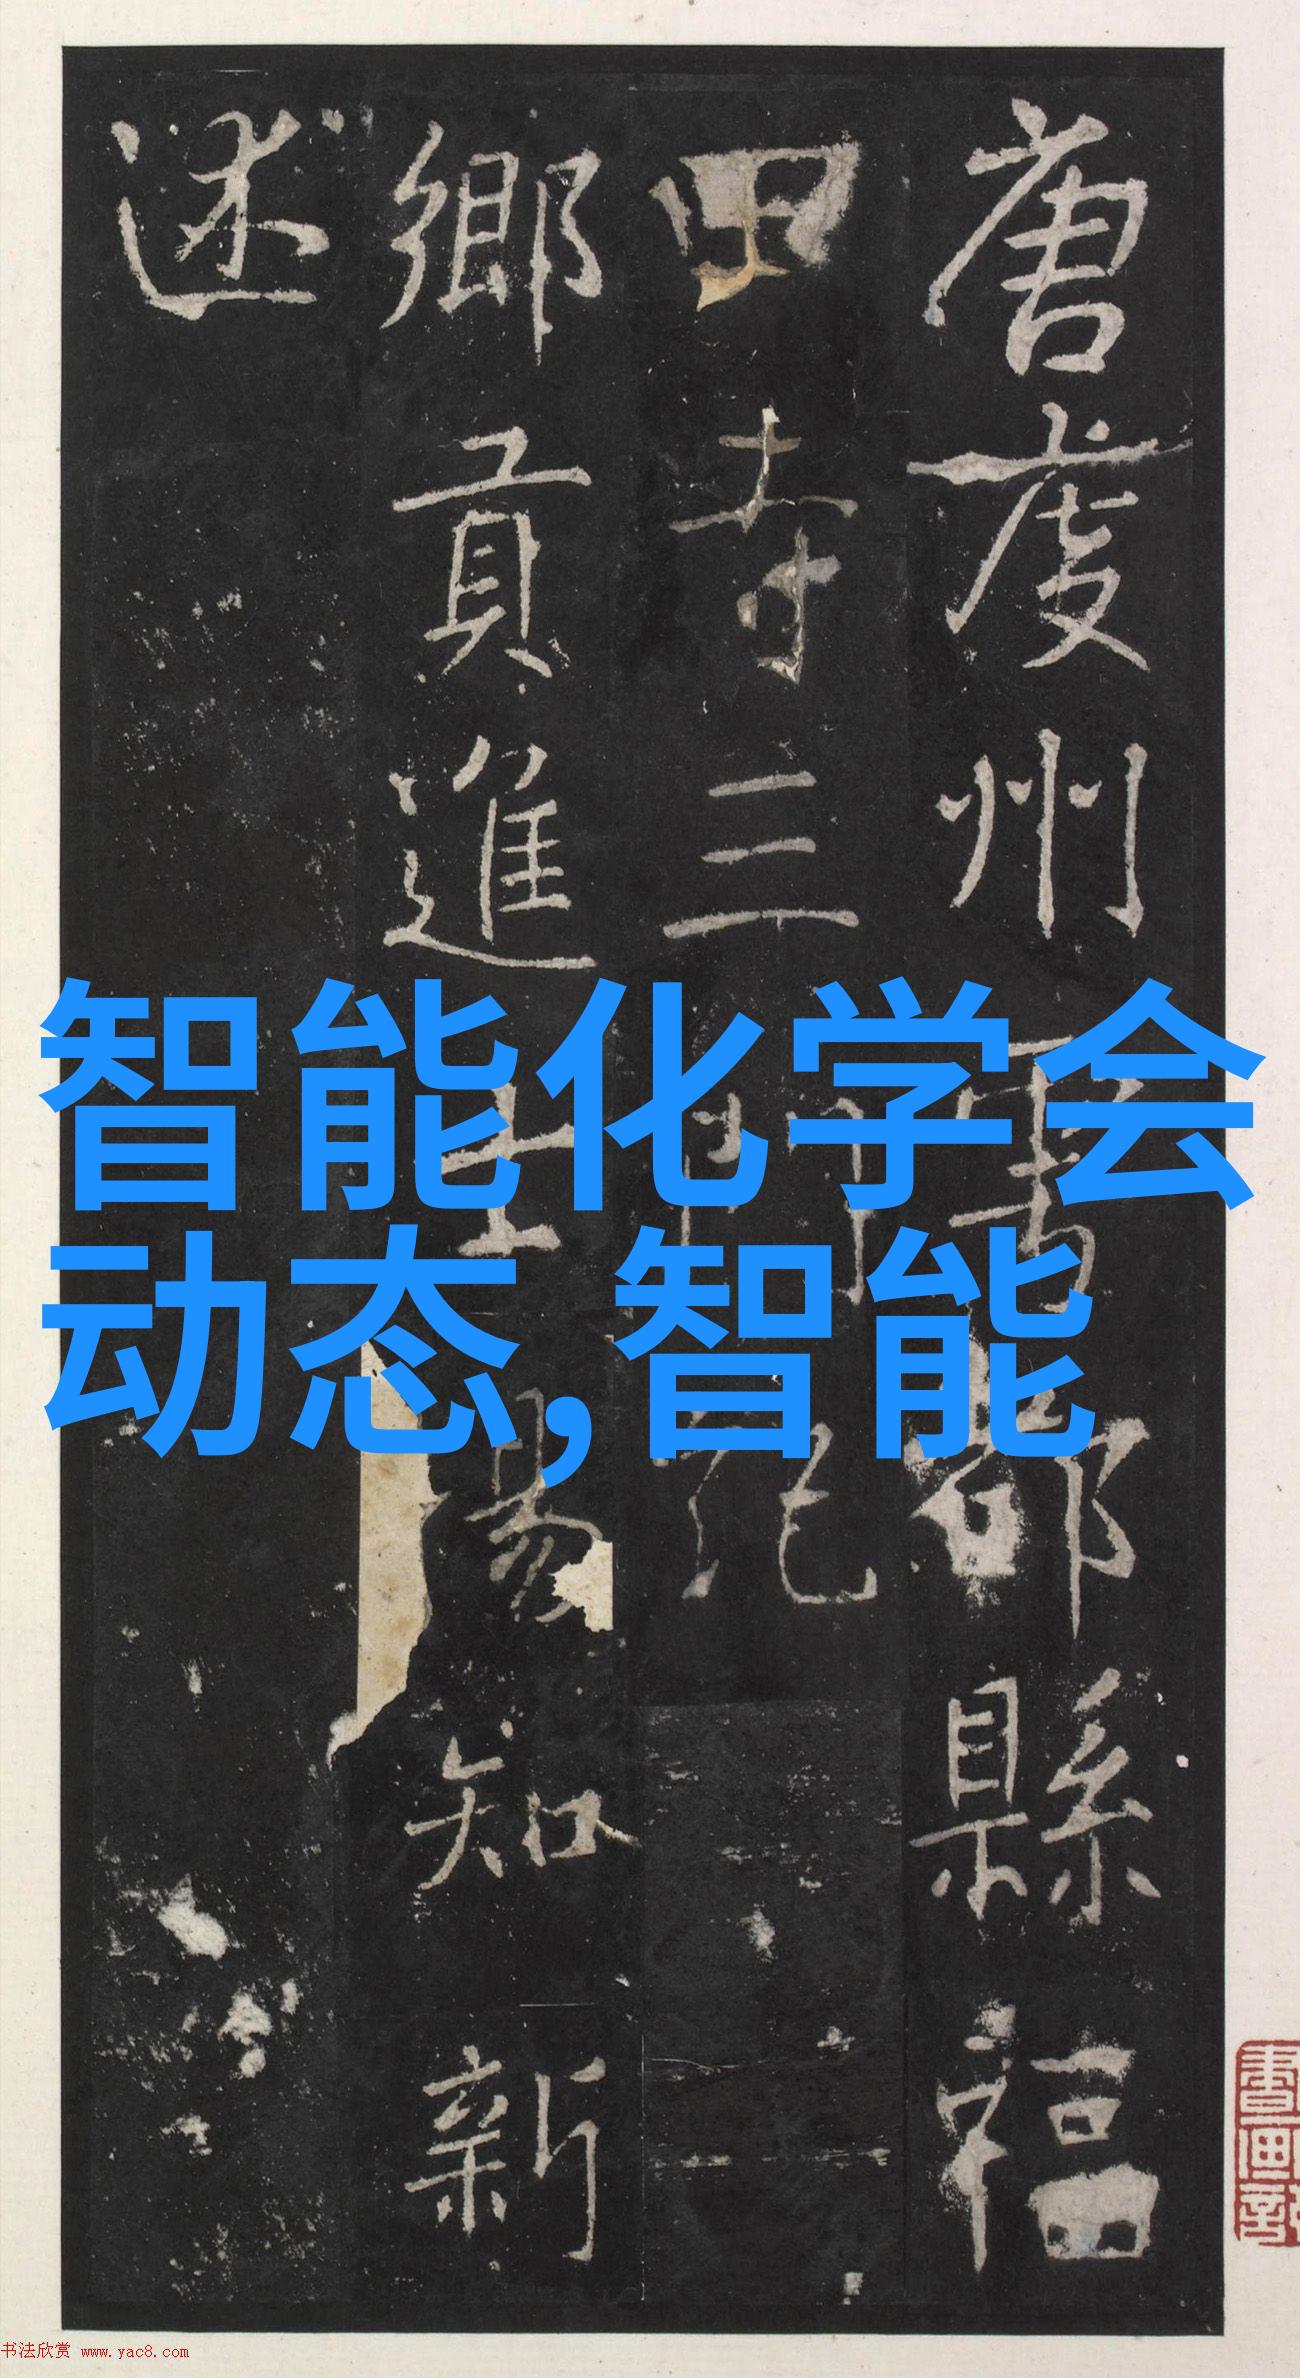 唐虔州雩都縣福
田寺三門記
鄉貢進士知新
述
智能化学会
动态,智能
书法欣赏 www.yac8.com